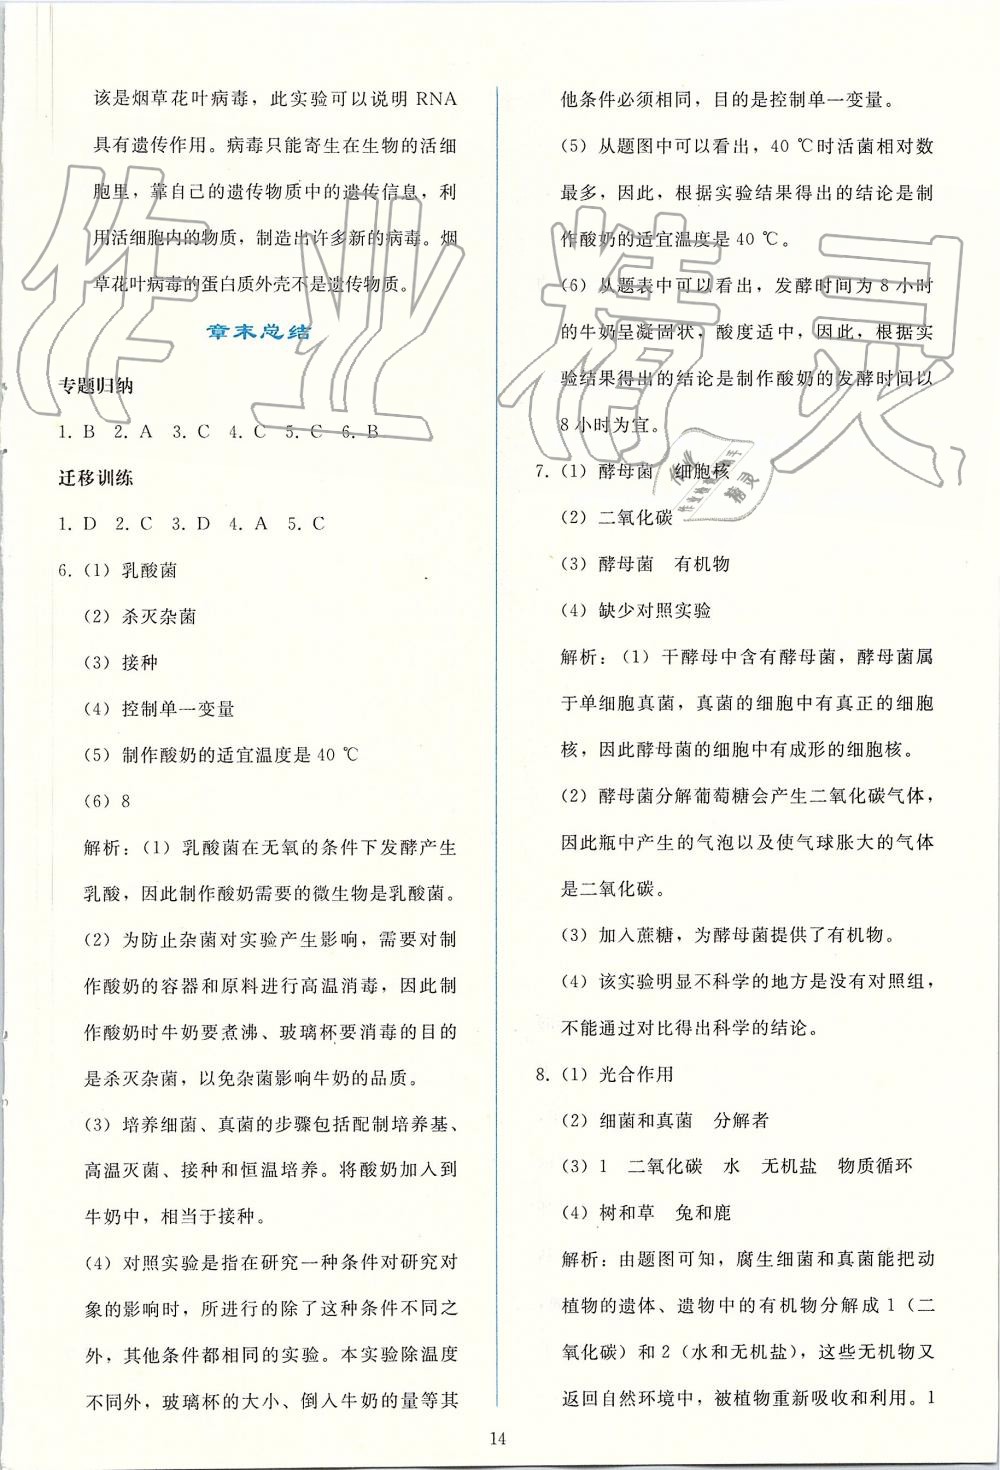 该是烟草花叶病毒，此实验可以说明 RNA
具有遗传作用。病毒只能寄生在生物的活细
胞里，靠自己的遗传物质中的遗传信息，利
用活细胞内的物质，制造出许多新的病毒。烟
草花叶病毒的蛋白质外壳不是遗传物质。
章末总结
专题归纳
1. B 2. A 3. C 4. C 5. C 6. B
迁移训练
1. D 2. C 3. D 4. A 5. C
6.（1）乳酸菌
（2）杀灭杂菌
（3）接种
（4）控制单一变量
（5）制作酸奶的适宜温度是 40 ℃
（6）8
解析：（1）乳酸菌在无氧的条件下发酵产生
乳酸，因此制作酸奶需要的微生物是乳酸菌。
（2）为防止杂菌对实验产生影响，需要对制
作酸奶的容器和原料进行高温消毒，因此制
作酸奶时牛奶要煮沸、玻璃杯要消毒的目的
是杀灭杂菌，以免杂菌影响牛奶的品质。
（3）培养细菌、真菌的步骤包括配制培养基、
高温灭菌、接种和恒温培养。将酸奶加入到
牛奶中，相当于接种。
（4）对照实验是指在研究一种条件对研究对
象的影响时，所进行的除了这种条件不同之
外，其他条件都相同的实验。本实验除温度
不同外，玻璃杯的大小、倒入牛奶的量等其
他条件必须相同，目的是控制单一变量。
（5）从题图中可以看出，40 ℃时活菌相对数
最多，因此，根据实验结果得出的结论是制
作酸奶的适宜温度是 40 ℃。
（6）从题表中可以看出，发酵时间为 8 小时
的牛奶呈凝固状，酸度适中，因此，根据实
验结果得出的结论是制作酸奶的发酵时间以
8 小时为宜。
7.（1）酵母菌 细胞核
（2）二氧化碳
（3）酵母菌 有机物
（4）缺少对照实验
解析：（1）干酵母中含有酵母菌，酵母菌属
于单细胞真菌，真菌的细胞中有真正的细胞
核，因此酵母菌的细胞中有成形的细胞核。
（2）酵母菌分解葡萄糖会产生二氧化碳气体，
因此瓶中产生的气泡以及使气球胀大的气体
是二氧化碳。
（3）加入蔗糖，为酵母菌提供了有机物。
（4）该实验明显不科学的地方是没有对照组，
不能通过对比得出科学的结论。
8.（1）光合作用
（2）细菌和真菌 分解者
（3）1 二氧化碳 水 无机盐 物质循环
（4）树和草 兔和鹿
解析：由题图可知，腐生细菌和真菌能把动
植物的遗体、遗物中的有机物分解成 1（二
氧化碳）和 2（水和无机盐），这些无机物又
返回自然环境中，被植物重新吸收和利用。1
14
作业精灵